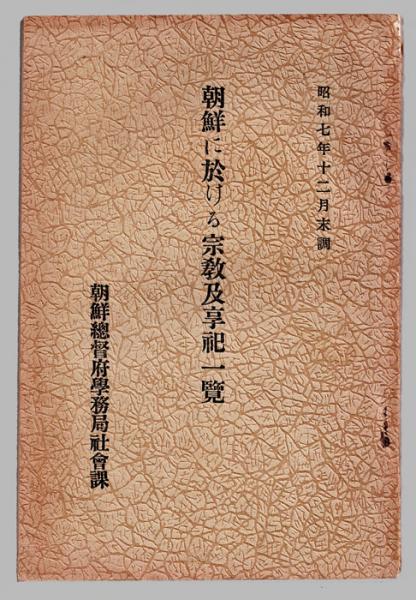 昭和七年十二月末調
朝鮮に於ける宗教及享祀一覽
朝鮮總督府學務局社會課